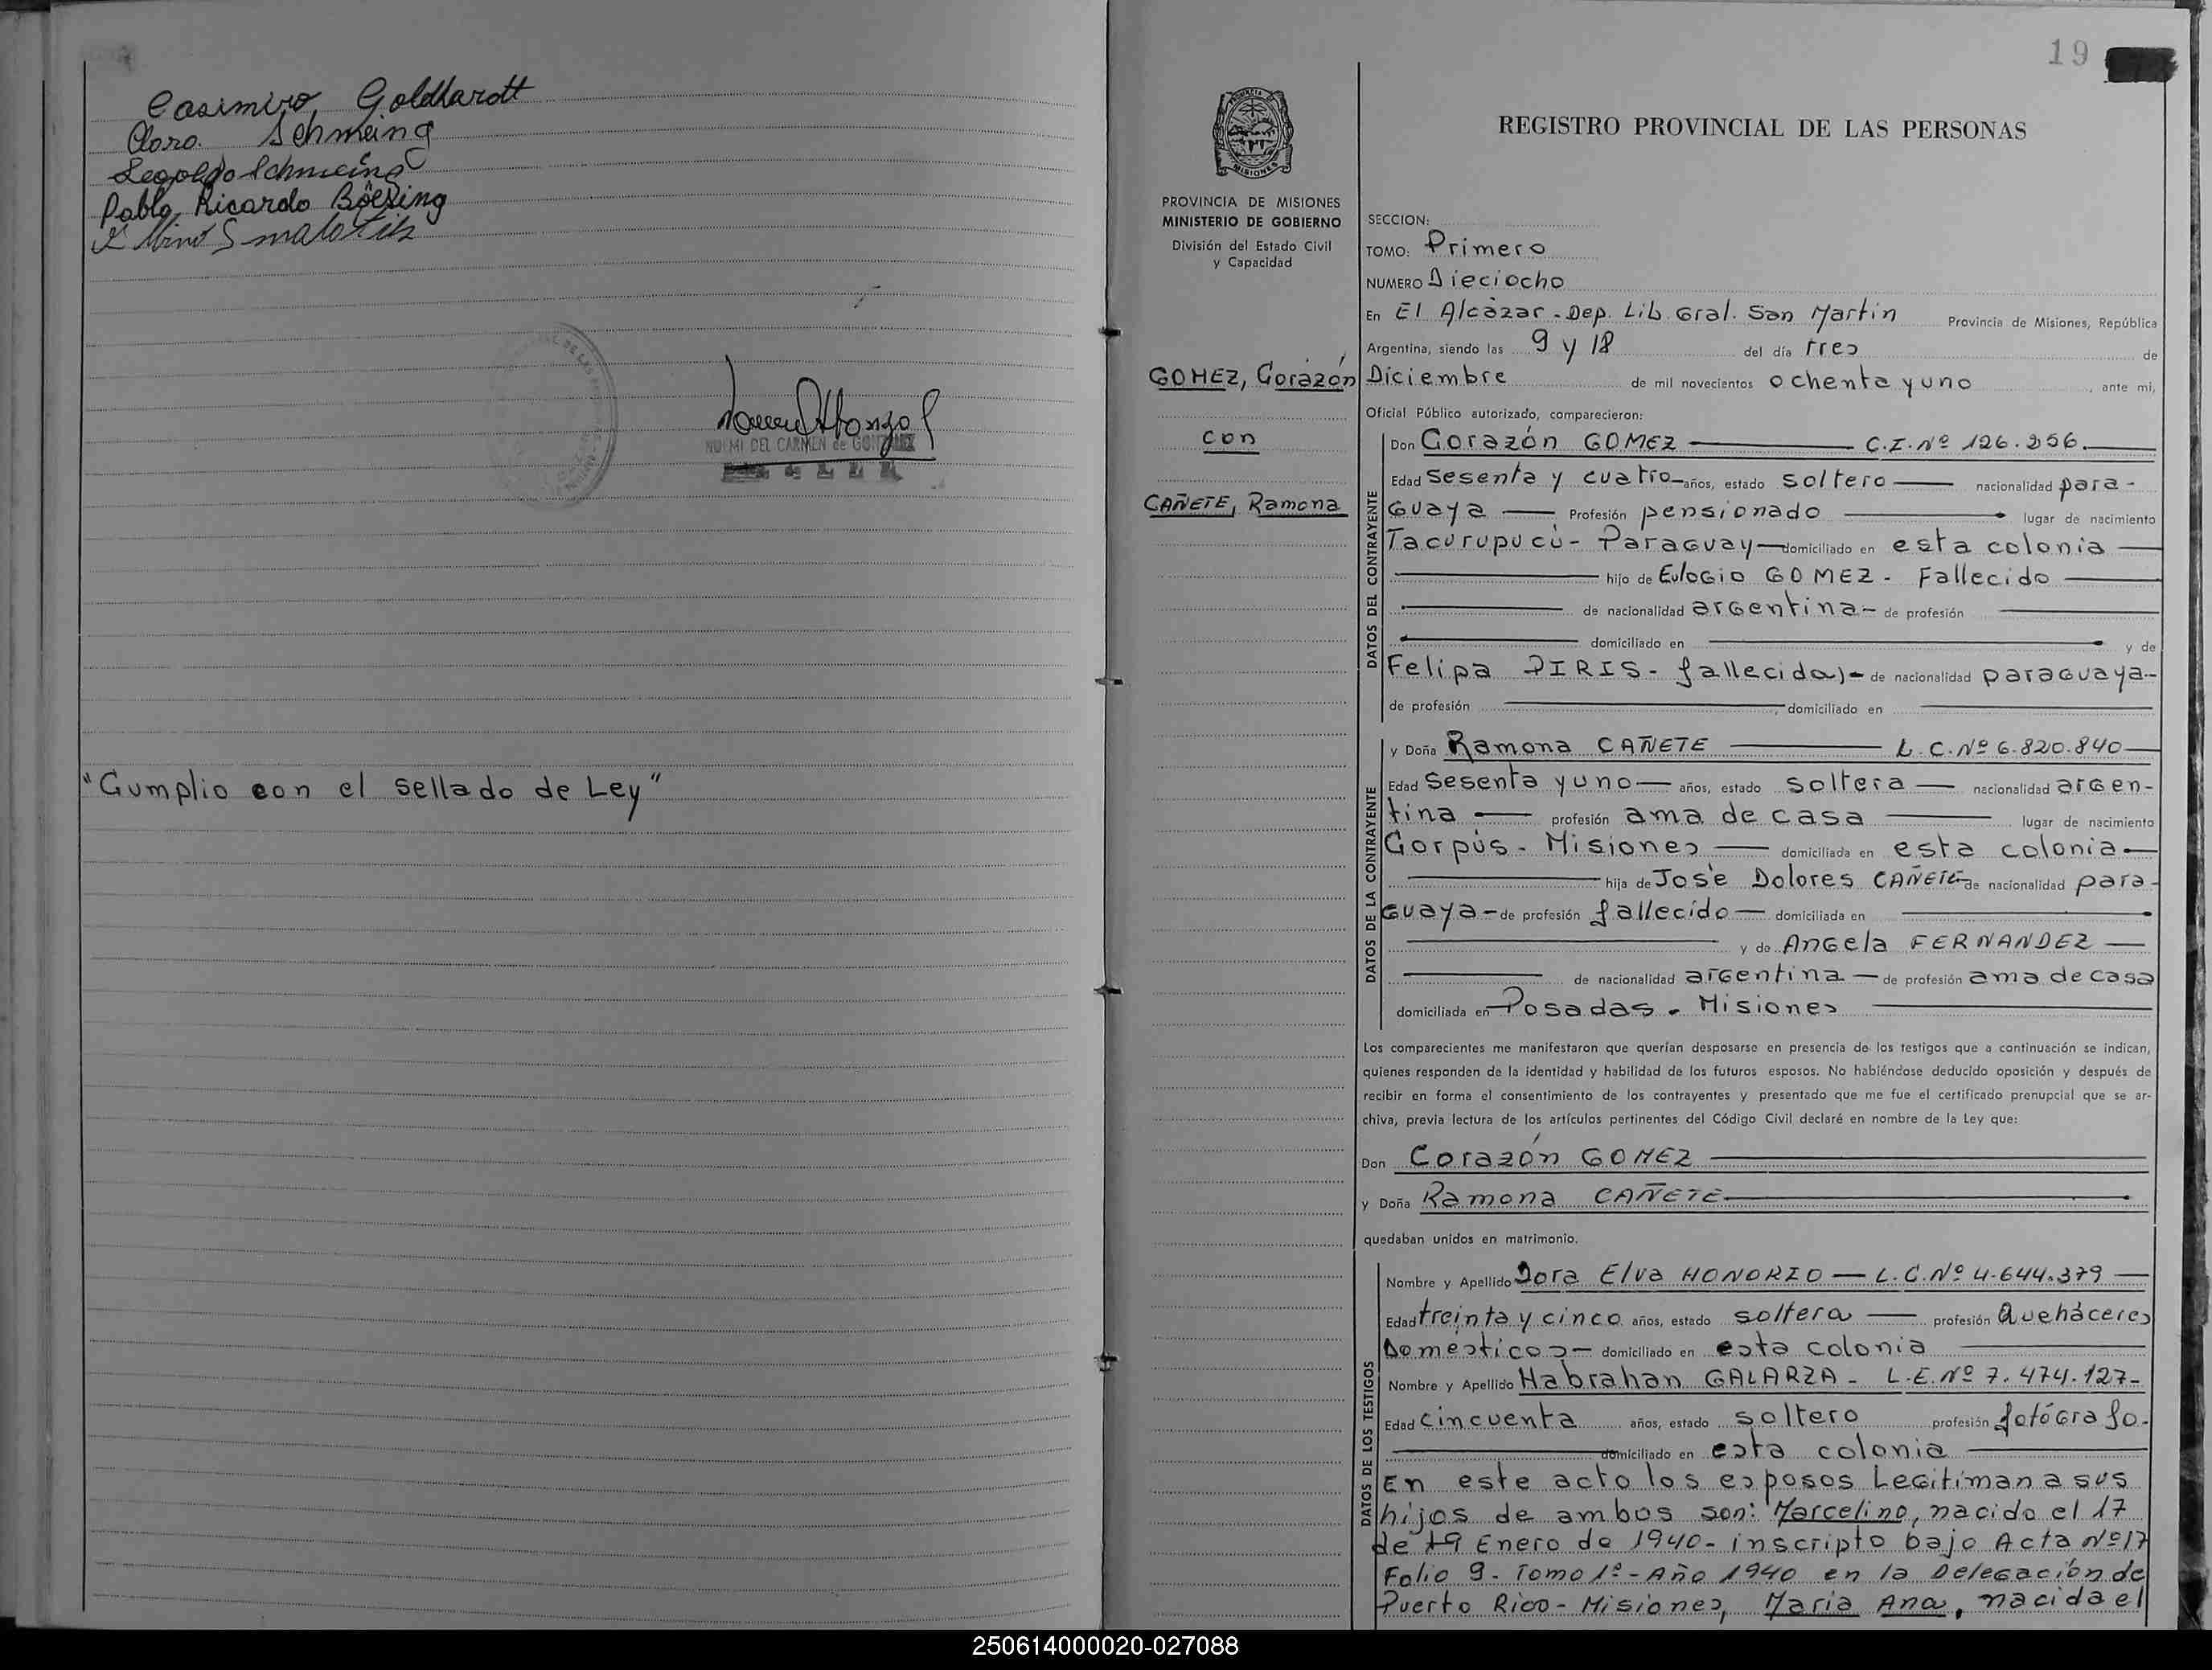 Casimiro Goldhardt
Clara Schmeing
Leopoldo Schmeing
Pablo Ricardo Böesing
NOEMI DEL CARMEN de GONZALEZ
"Cumplio con el sellado de Ley"
19
REGISTRO PROVINCIAL DE LAS PERSONAS
PROVINCIA DE MISIONES
MINISTERIO DE GOBIERNO
División del Estado Civil
y Capacidad
GOMEZ, Corazón
con
CAÑETE, Ramona
SECCION:
TOMO: Primero
NUMERO Dieciocho
En El Alcázar - Dep. Lib. Gral. San Martin Provincia de Misiones, República
Argentina, siendo las 9 y 18 del día tres de
Diciembre de mil novecientos ochenta y uno, ante mi,
Oficial Público autorizado, comparecieron:
DATOS DEL CONTRAYENTE
Don Corazón GOMEZ C.I. Nº 126.256.
Edad sesenta y cuatro años, estado soltero nacionalidad para-
guaya Profesión pensionado lugar de nacimiento
Tacurupucú - Paraguay domiciliado en esta colonia
hijo de Eulogio GOMEZ - Fallecido
de nacionalidad argentina - de profesión
domiciliado en y de
Felipa PIRIS - fallecida)- de nacionalidad paraguaya-
de profesión , domiciliado en
DATOS DE LA CONTRAYENTE
y Doña Ramona CAÑETE L.C. Nº 6.820.840
Edad Sesenta y uno años, estado soltera nacionalidad argen-
tina profesión ama de casa lugar de nacimiento
Corpus - Misiones domiciliada en esta colonia
hija de José Dolores CAÑETE de nacionalidad para-
guaya - de profesión fallecido domiciliada en
y de Angela FERNANDEZ
de nacionalidad argentina de profesión ama de casa
domiciliada en Posadas - Misiones
Los comparecientes me manifestaron que querían desposarse en presencia de los testigos que a continuación se indican,
quienes responden de la identidad y habilidad de los futuros esposos. No habiéndose deducido oposición y después de
recibir en forma el consentimiento de los contrayentes y presentado que me fue el certificado prenupcial que se ar-
chiva, previa lectura de los artículos pertinentes del Código Civil declaré en nombre de la Ley que:
Don Corazón GOMEZ
y Doña Ramona CAÑETE
quedaban unidos en matrimonio.
DATOS DE LOS TESTIGOS
Nombre y Apellido Dora Elva HONORIO - L.C. Nº 4.644.379
Edad treinta y cinco años, estado soltera profesión Queháceres
Domesticos - domiciliado en esta colonia
Nombre y Apellido Habrahan GALARZA - L.E. Nº 7.474.127-
Edad cincuenta años, estado soltero profesión fotógrafo.
domiciliado en esta colonia
En este acto los esposos Legitiman a sus
hijos de ambos son: Marcelino, nacido el 17
de 19 Enero de 1940 - inscripto bajo Acta Nº 17
Folio 9 - Tomo 1º - Año 1940 en la Delegación de
Puerto Rico - Misiones, Maria Ana, nacida el
250614000020-027088